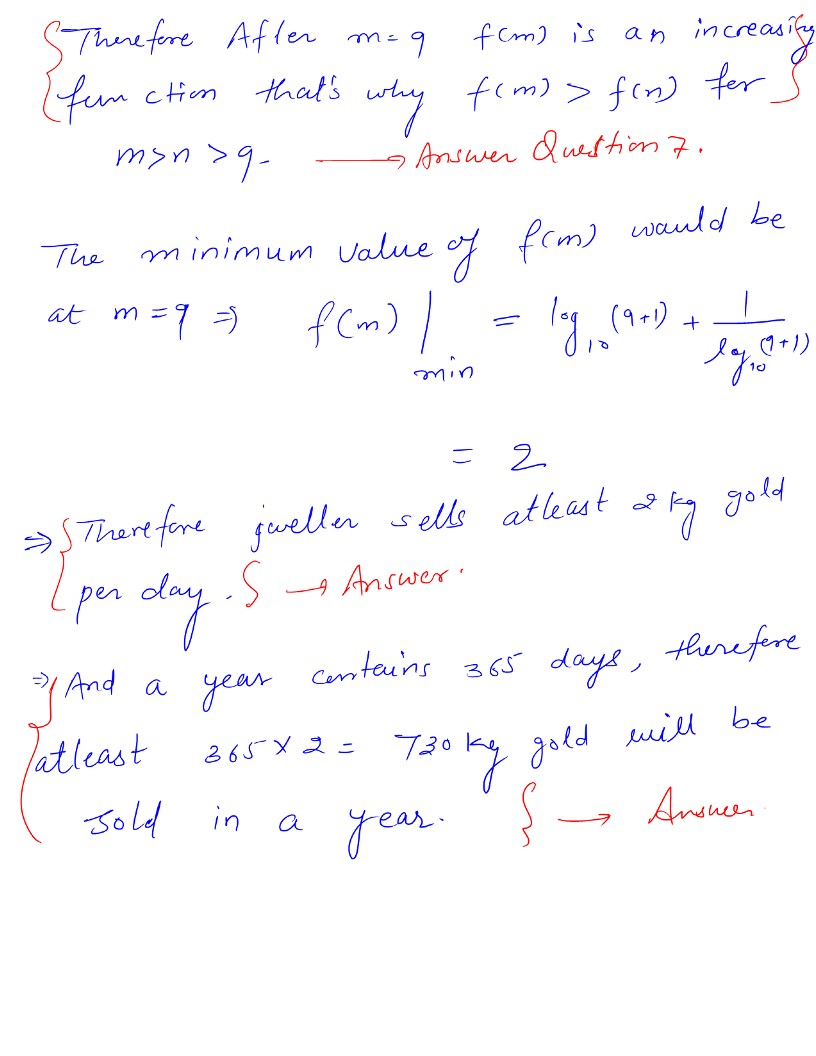 Therefore After m=9 f(m) is an increasing
function that's why f(m) > f(n) for
m>n >9. → Answer Question 7.
The minimum value of f(m) would be
at m=9 ⇒ f(m)|min = log₁₀(9+1) + 1/log₁₀(9+1)
= 2
⇒ Therefore jweller sells atleast 2 kg gold
per day. → Answer.
⇒ And a year contains 365 days, therefore
atleast 365 × 2 = 730 kg gold will be
sold in a year. } → Answer.